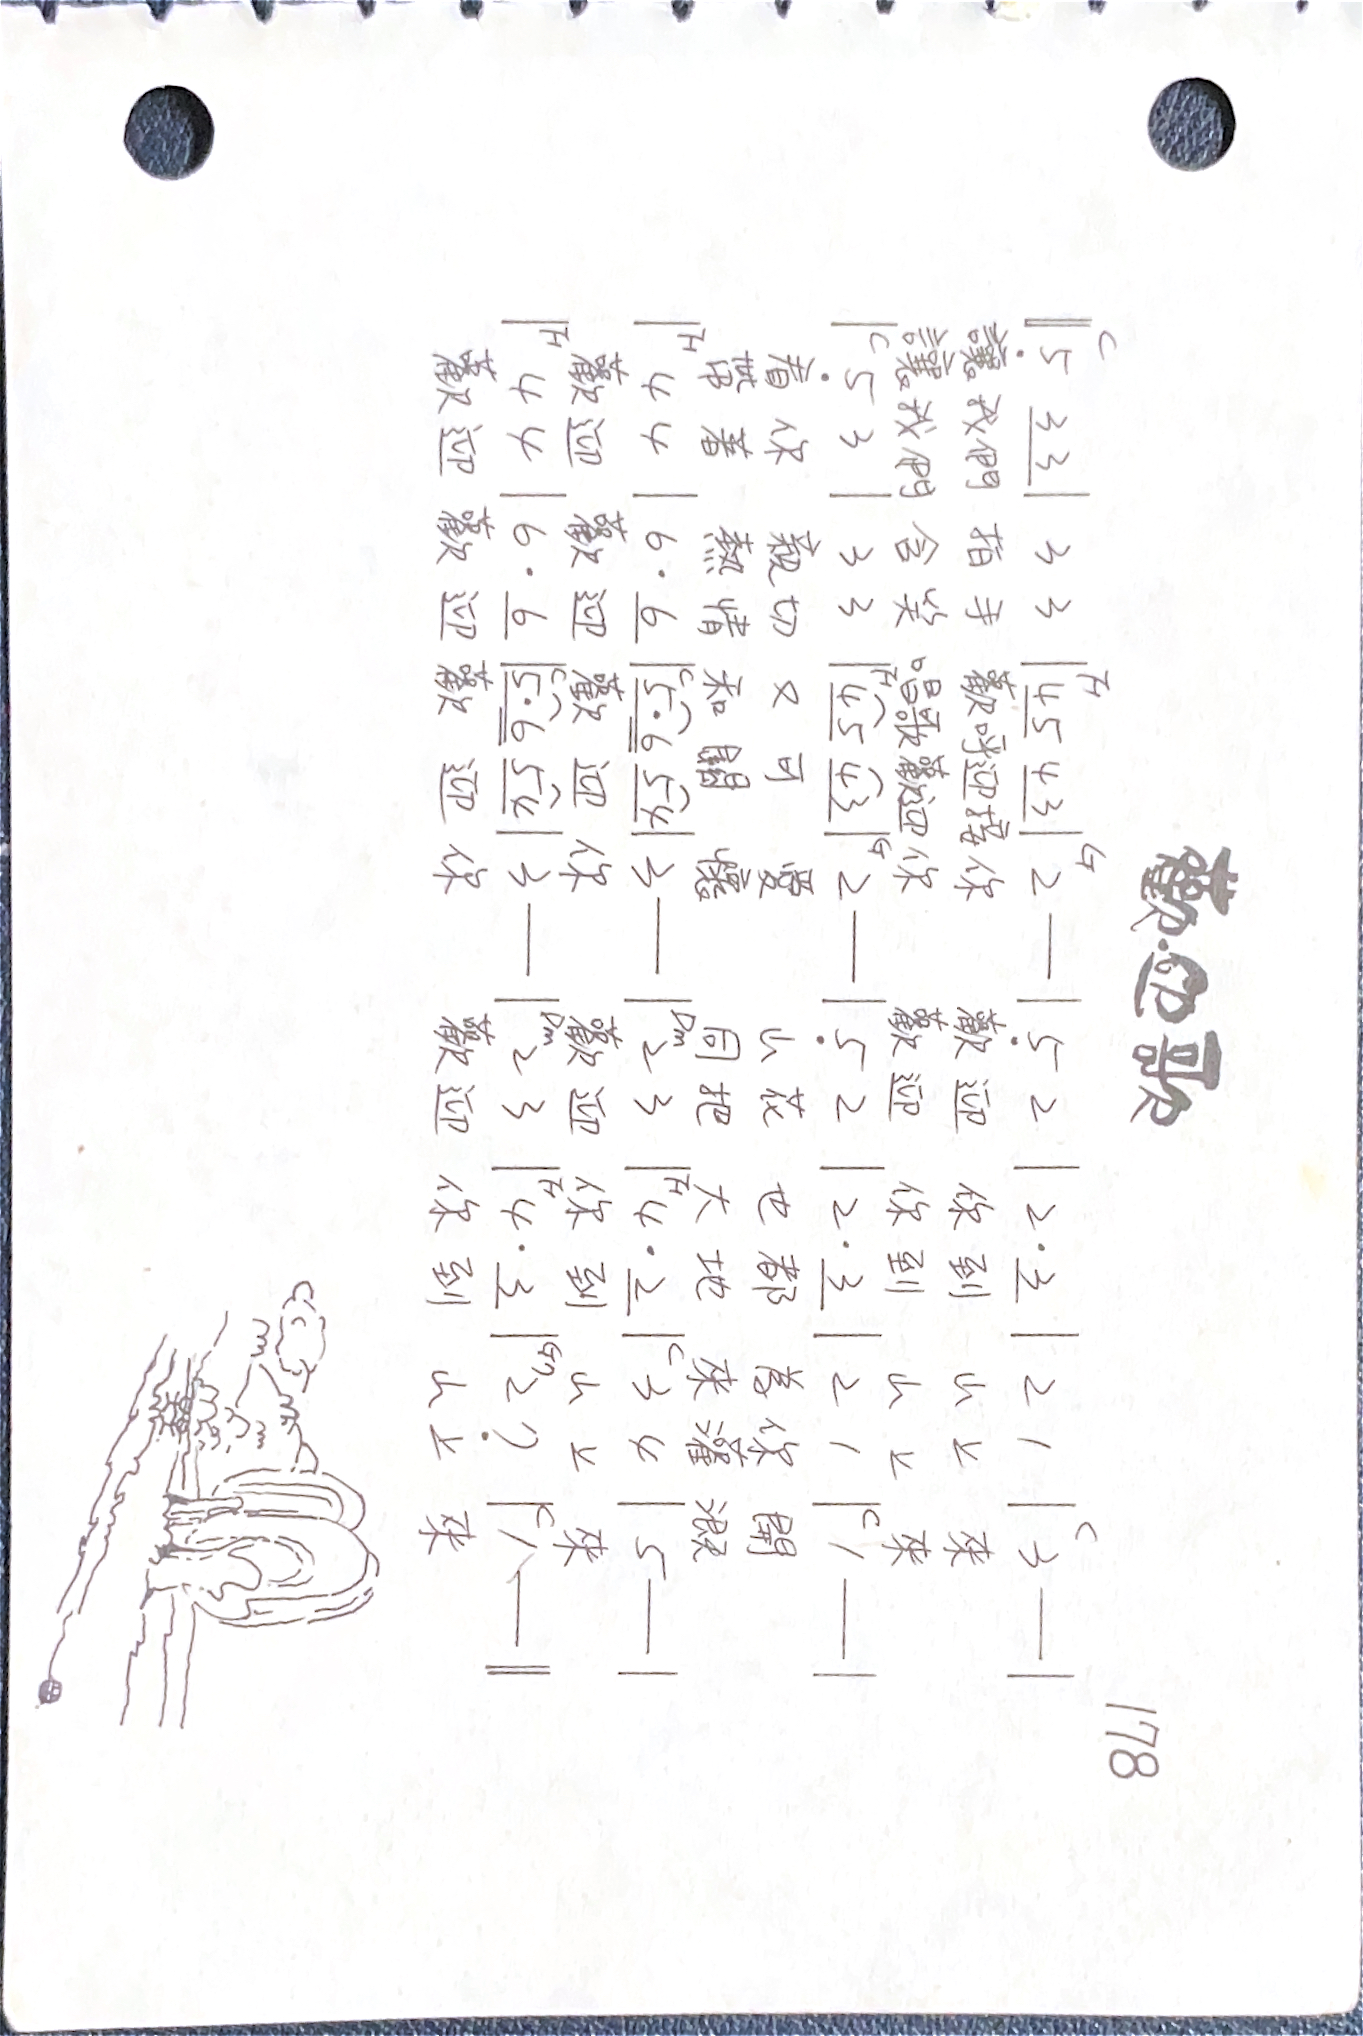 歡迎歌
178
C F G C
‖5̣ 3 3 | 3 3 | 4 5 4 3 | 2 — | 5̣ 2 | 2 · 3 | 2 1 | 3 — |
讓我們 拍手 歡呼迎接你 歡迎 你到 山上 來
讓我們 含笑 唱歌歡迎你 歡迎 你到 山上 來
C F G C
| 5̣ 3 | 3 3 | 4 5 4 3 | 2 — | 5̣ 2 | 2 · 3 | 2 1 | 1 — |
看你 親切 又可 愛 山花 也都 為你 開
帶著 熱情 和關 懷 同把 大地 來灌 溉
F C Dm F C
| 4 4 | 6 · 6 | 5 · 6 5 4 | 3 — | 2 3 | 4 · 2 | 3 4 | 5 — |
歡迎 歡迎 歡迎 你 歡迎 你到 山上 來
F C Dm F G7 C
| 4 4 | 6 · 6 | 5 · 6 5 4 | 3 — | 2 3 | 4 · 3 | 2 7̣ | 1 — ‖
歡迎 歡迎 歡迎 你 歡迎 你到 山上 來